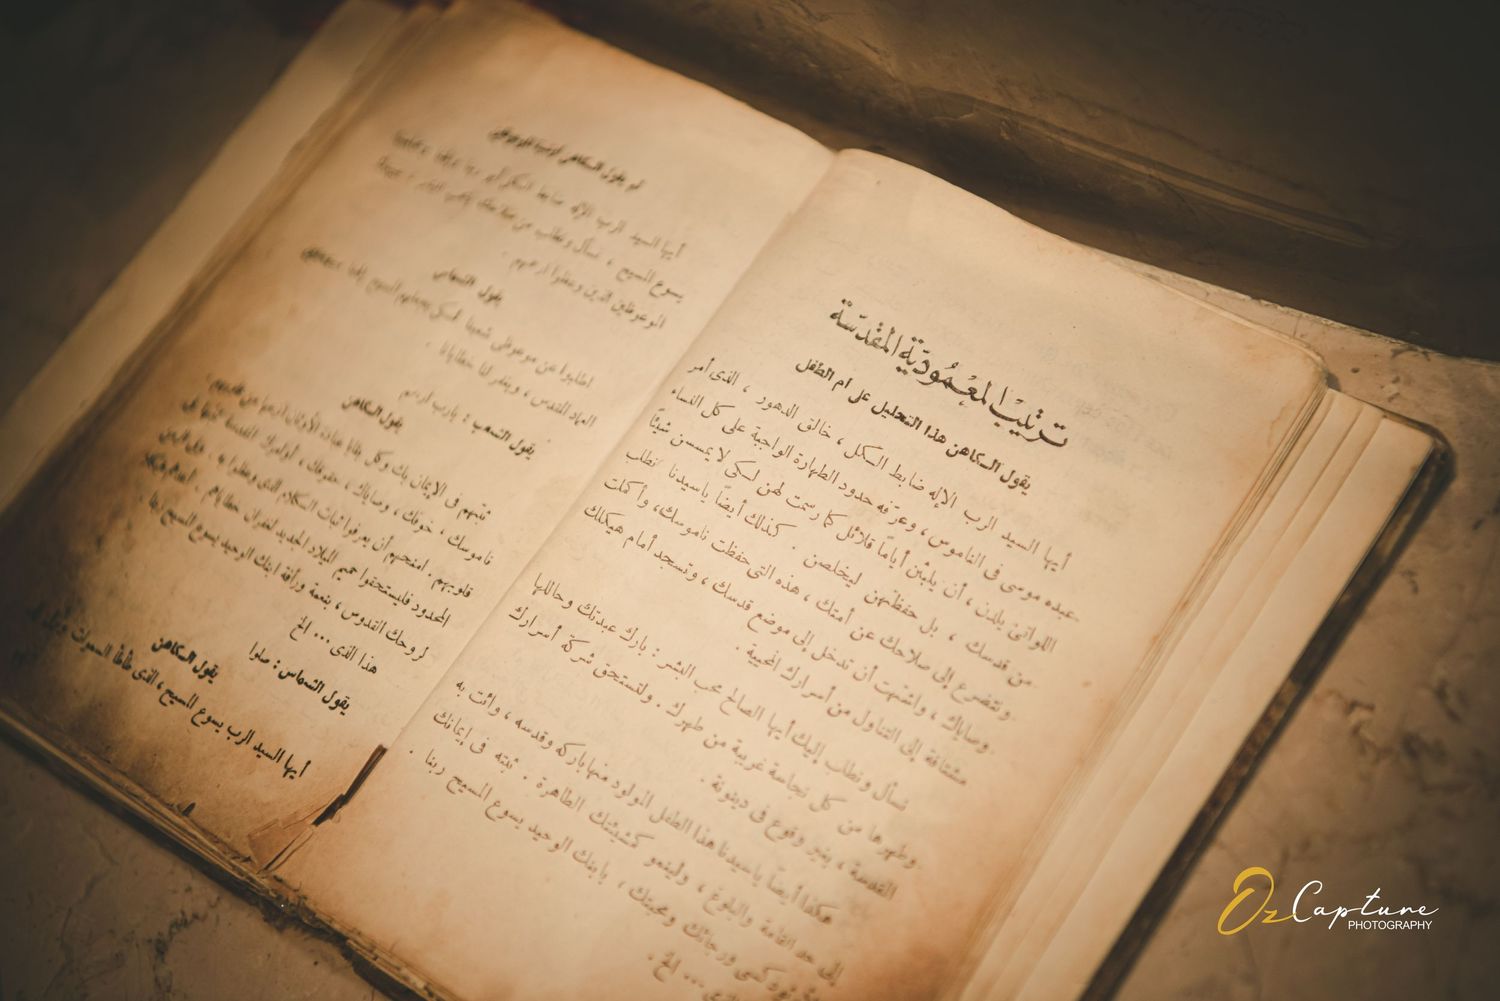 ترتيب المعمودية المقدسة
يقول الكاهن هذا التحليل على أم الطفل
أيها السيد الرب الإله ضابط الكل ، خالق الدهور ، الذى أمر
عبده موسى فى الناموس ، وعرّفه حدود الطهارة الواجبة على كل النساء
اللواتى يلدن ، أن يلبثن أياماً قلائل كما رسمت لهن لكى لا يمسسن شيئاً
من قدسك ، بل حفظتهن ليخلصن . كذلك أيضاً ياسيدنا نطلب
ونتضرع إلى صلاحك عن أمتك ، هذه التى حفظت ناموسك ، وأكملت
وصاياك ، واشتهت أن تدخل إلى موضع قدسك ، وتسجد أمام هيكلك
مشتاقة إلى التناول من أسرارك المحيية .
نسأل ونطلب إليك أيها الصالح محب البشر : بارك عبدتك وحاللها
وطهرها من كل نجاسة غريبة من طهرك . ولتستحق شركة أسرارك
القدسة ، بغير وقوع فى دينونة .
هكذا أيضاً ياسيدنا هذا الطفل المولود منها باركه وقدسه ، وائت به
إلى حد القامة والبلوغ ، ولينمو كمشيئتك الطاهرة . ثبته فى إيمانك
ورجائك ومحبتك ، بابنك الوحيد يسوع المسيح ربنا .
... الخ .
أيها السيد الرب الإله ضابط الكل
يسوع المسيح ، نسأل ونطلب من
الموعوظين الذين وعظوا ارحمهم .
يقول الشماس
اطلبوا عن موعوظى شعبنا لكى يجعلهم المسيح إلهنا
المقدس ، ويغفر لنا خطايانا .
يقول الشعب : يارب ارحم
يقول الكاهن
ثبتهم فى الإيمان بك وكل بقايا عبادة الأوثان انزعها من قلوبهم .
ناموسك ، خوفك ، وصاياك ، حقوقك ، أوامرك المقدسة ثبتها فى
قلوبهم . امنحهم أن يعرفوا ثبات الكلام الذى وعظوا به .
المحدود فليستحقوا حميم الميلاد الجديد لغفران خطاياهم .
لروحك القدوس ، بنعمة ورأفة ابنك الوحيد يسوع المسيح ربنا .
هذا الذى ... الخ
يقول الشماس : صلوا
يقول الكاهن
أيها السيد الرب يسوع المسيح ، الذى طأطأ السموات ونزل
OzCapture
PHOTOGRAPHY